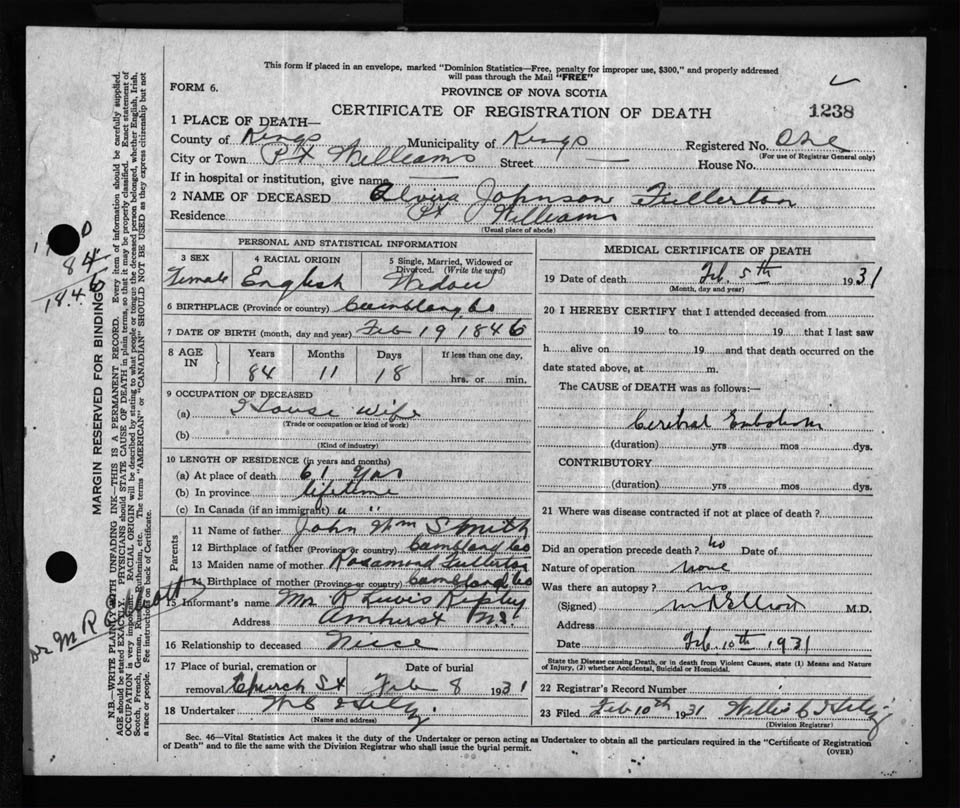 This form if placed in an envelope, marked "Dominion Statistics—Free, penalty for improper use, $300," and properly addressed
will pass through the Mail "FREE"
FORM 6.
PROVINCE OF NOVA SCOTIA
CERTIFICATE OF REGISTRATION OF DEATH
1238
1 PLACE OF DEATH—
County of Kings Municipality of Kings Registered No. One
(For use of Registrar General only)
City or Town Pt Williams Street — House No.
If in hospital or institution, give name —
2 NAME OF DECEASED Alvira Johnson Fullerton
Residence Pt Williams
(Usual place of abode)
PERSONAL AND STATISTICAL INFORMATION
3 SEX 4 RACIAL ORIGIN 5 Single, Married, Widowed or Divorced. (Write the word)
Female English Widow
6 BIRTHPLACE (Province or country) Cumbland Co
7 DATE OF BIRTH (month, day and year) Feb 19 1846
8 AGE IN Years Months Days If less than one day,
84 11 18 hrs. or min.
9 OCCUPATION OF DECEASED
(a) House wife
(Trade or occupation or kind of work)
(b)
(Kind of industry)
10 LENGTH OF RESIDENCE (in years and months)
(a) At place of death 61 yrs
(b) In province lifetime
(c) In Canada (if an immigrant) " "
Parents
11 Name of father John Wm Smith
12 Birthplace of father (Province or country) Cumbland Co
13 Maiden name of mother Rosamond Fullerton
14 Birthplace of mother (Province or country) Cumbland Co
15 Informant's name Mrs R Lewis Ripley
Address Amherst N.S.
16 Relationship to deceased Niece
17 Place of burial, cremation or Date of burial
removal Church St Feb 8 1931
18 Undertaker W C
(Name and address)
MEDICAL CERTIFICATE OF DEATH
19 Date of death Feb. 5th 1931
(Month, day and year)
20 I HEREBY CERTIFY that I attended deceased from
19 to 19 that I last saw
h alive on 19 and that death occurred on the
date stated above, at m.
The CAUSE of DEATH was as follows:—
Cerebral Embolism
(duration) yrs mos dys.
CONTRIBUTORY
(duration) yrs mos dys.
21 Where was disease contracted if not at place of death?
Did an operation precede death? no Date of
Nature of operation none
Was there an autopsy? no
(Signed) M R Elliott M.D.
Address
Date Feb. 10th 1931
State the Disease causing Death, or in death from Violent Causes, state (1) Means and Nature
of Injury, (2) whether Accidental, Suicidal or Homicidal.
22 Registrar's Record Number
23 Filed Feb 10th 1931 Willis C
(Division Registrar)
Sec. 46—Vital Statistics Act makes it the duty of the Undertaker or person acting as Undertaker to obtain all the particulars required in the "Certificate of Registration
of Death" and to file the same with the Division Registrar who shall issue the burial permit.
(OVER)
MARGIN RESERVED FOR BINDING
N.B.—WRITE PLAINLY WITH UNFADING INK—THIS IS A PERMANENT RECORD. Every item of information should be carefully supplied.
AGE should be stated EXACTLY. PHYSICIANS should STATE CAUSE OF DEATH in plain terms, so that it may be properly classified. Exact statement of
OCCUPATION is very important. RACIAL ORIGIN will be described by stating to what people or tongue the deceased person belonged, whether English, Irish,
Scotch, French, German, Russian, Ruthenian, etc. The terms "AMERICAN" or "CANADIAN" SHOULD NOT BE USED as they express citizenship but not
a race or people. See instructions on back of Certificate.
84
Dr M R Elliott